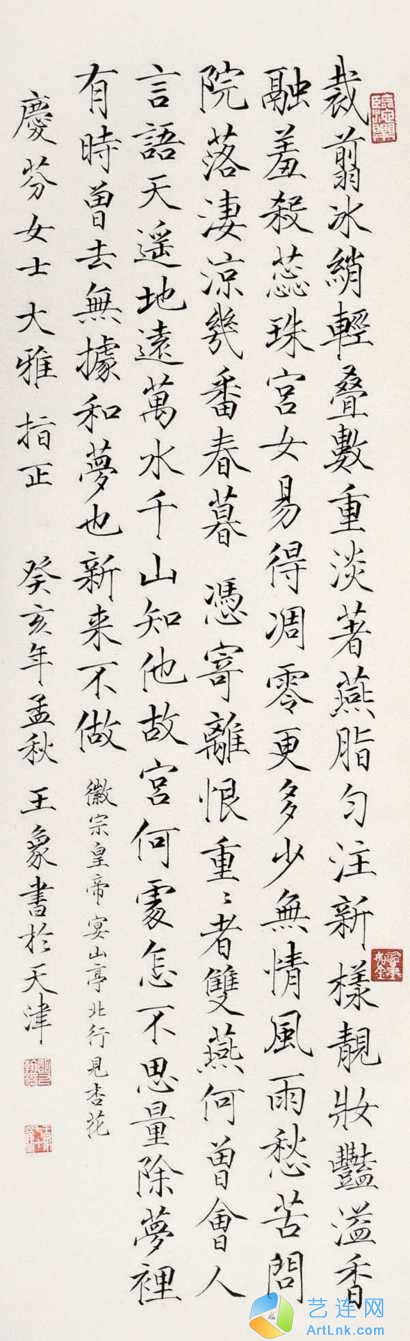 裁翦冰綃輕疊數重淡著燕脂勻注新樣靚妝豔溢香
融羞殺蕊珠宮女易得凋零更多少無情風雨愁苦問
院落淒涼幾番春暮憑寄離恨重〻者雙燕何曾會人
言語天遥地遠萬水千山知他故宮何處怎不思量除夢裡
有時曾去無據和夢也新来不做
徽宗皇帝宴山亭北行見杏花
慶芬女士大雅指正 癸亥年孟秋王象書於天津
艺连网
ArtLnk.com